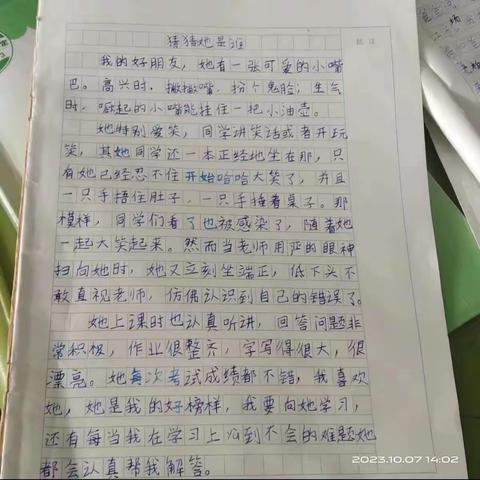 猜猜她是谁
我的好朋友,她有一张可爱的小嘴
巴。高兴时,撇撇嘴,扮个鬼脸;生气
时,噘起的小嘴能挂住一把小油壶。
她特别爱笑,同学讲笑话或者开玩
笑,其她同学还一本正经地坐在那,只
有她已经忍不住开始哈哈大笑了,并且
一只手捂住肚子,一只手捶着桌子。那
模样,同学们看了也被感染了,随着她
一起大笑起来。然而当老师用严的眼神
扫向她时,她又立刻坐端正,低下头不
敢直视老师,仿佛认识到自己的错误了。
她上课时也认真听讲,回答问题非
常积极,作业很整齐,字写得很大,很
漂亮。她每次考试成绩都不错,我喜欢
她,她是我的好榜样,我要向她学习,
还有每当我在学习上心到不会的难题她
都会认真帮我解答。
2023.10.07 14:02